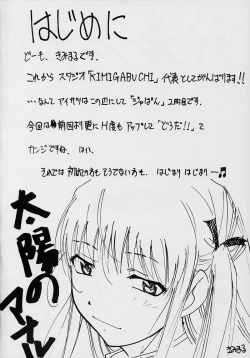 はじめに
どーも、きみまるです。
これからスタジオ「KIMIGABUCHI」代表としてがんばります!!
…なんてアイサツはこの辺にして「じゃぱん」2冊目です。
今回は前回より更にH度もアップして「どうだ!!」って
カンジですね、はい。
それでは初めての方もそうでない方も、はじまりはじまりー♪
太陽の